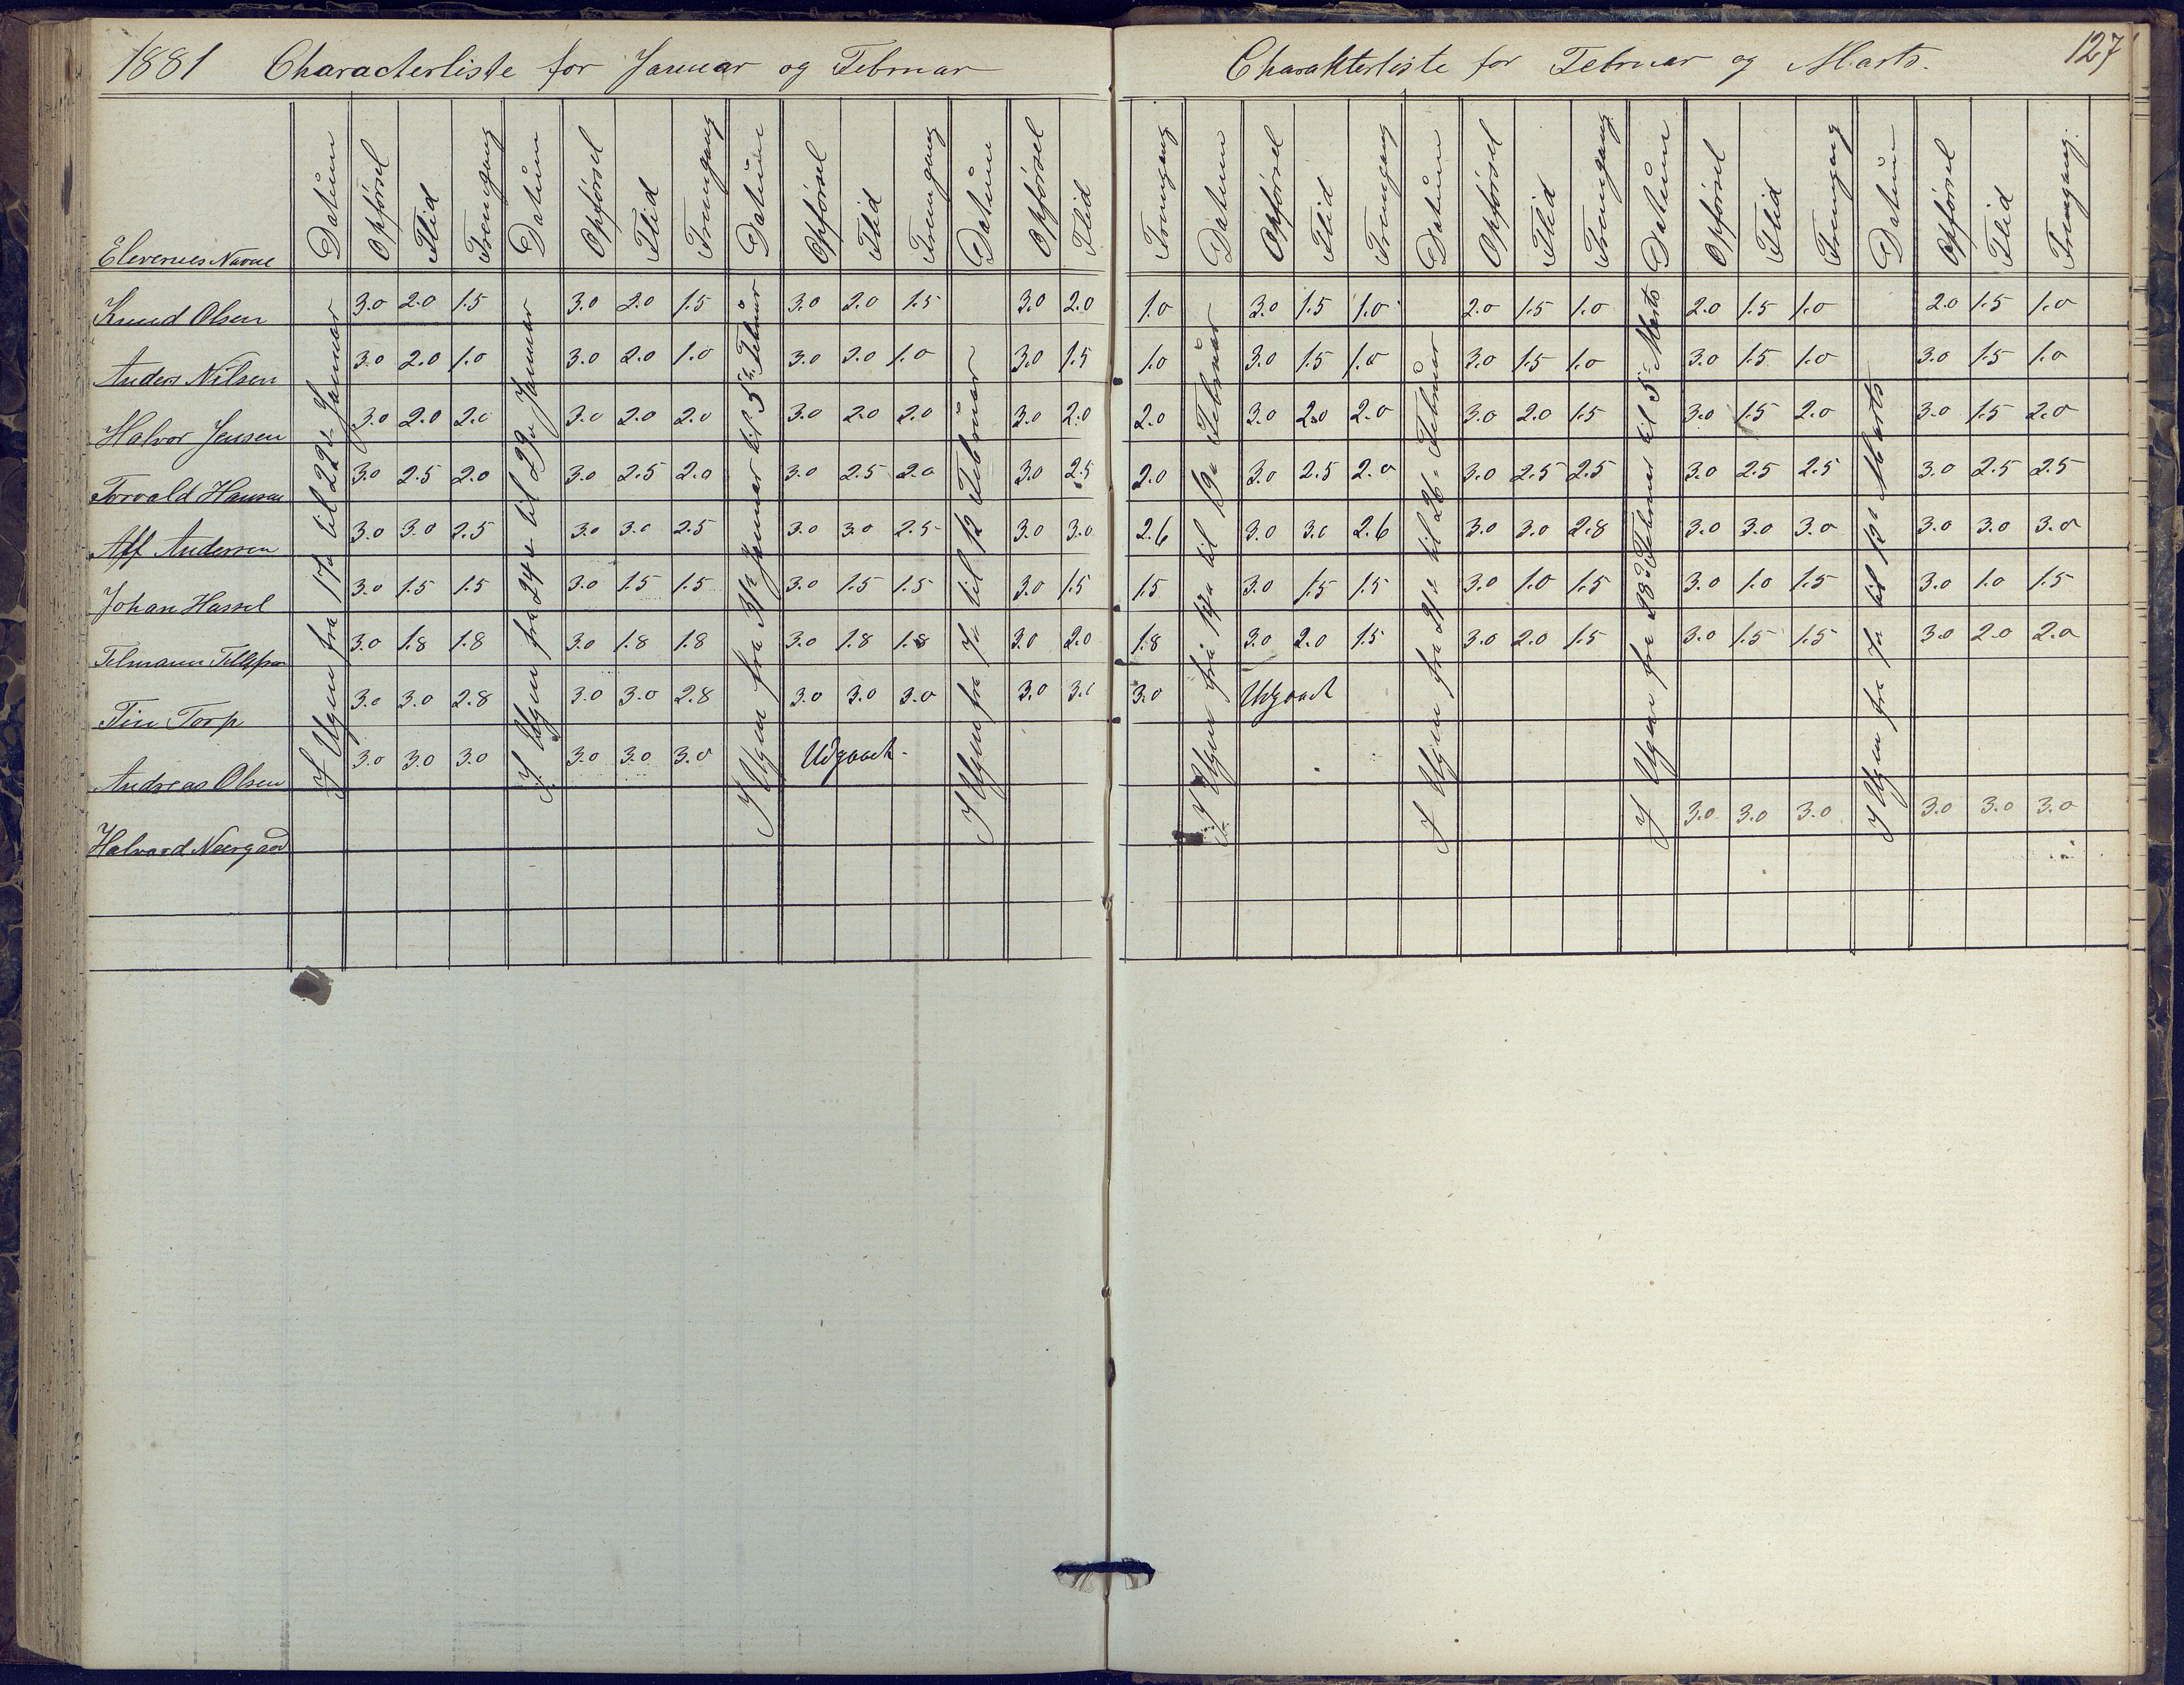 1881 Characterliste for Januar og Februar
Charakterliste for Februar og Marts.
127
Elevernes Navne Datum Opførsel Flid Fremgang Datum Opførsel Flid Fremgang Datum Opførsel Flid Fremgang Datum Opførsel Flid Fremgang Datum Opførsel Flid Fremgang Datum Opførsel Flid Fremgang Datum Opførsel Flid Fremgang Datum Opførsel Flid Fremgang
I Ugen fra 17de til 22de Januar
I Ugen fra 24de til 29de Januar
I Ugen fra 31te Januar til 5te Februar
I Ugen fra 7de til 12 Februar
I Ugen fra 14de til 19de Februar
I Ugen fra 21de til 26de Februar
I Ugen fra 28de Februar til 5te Marts
I Ugen fra 7de til 12te Marts
Knud Olsen 3.0 2.0 1.5 3.0 2.0 1.5 3.0 2.0 1.5 3.0 2.0 1.0 3.0 1.5 1.0 2.0 1.5 1.0 2.0 1.5 1.0 2.0 1.5 1.0
Anders Nilsen 3.0 2.0 1.0 3.0 2.0 1.0 3.0 2.0 1.0 3.0 1.5 1.0 3.0 1.5 1.0 3.0 1.5 1.0 3.0 1.5 1.0 3.0 1.5 1.0
Halvor Jensen 3.0 2.0 2.0 3.0 2.0 2.0 3.0 2.0 2.0 3.0 2.0 2.0 3.0 2.0 2.0 3.0 2.0 1.5 3.0 1.5 2.0 3.0 1.5 2.0
Torvald Hansen 3.0 2.5 2.0 3.0 2.5 2.0 3.0 2.5 2.0 3.0 2.5 2.0 3.0 2.5 2.0 3.0 2.5 2.5 3.0 2.5 2.5 3.0 2.5 2.5
Alf Andersen 3.0 3.0 2.5 3.0 3.0 2.5 3.0 3.0 2.5 3.0 3.0 2.6 3.0 3.0 2.6 3.0 3.0 2.8 3.0 3.0 3.0 3.0 3.0 3.0
Johan Hassel 3.0 1.5 1.5 3.0 1.5 1.5 3.0 1.5 1.5 3.0 1.5 1.5 3.0 1.5 1.5 3.0 1.0 1.5 3.0 1.0 1.5 3.0 1.0 1.5
Telmann Tellefsen 3.0 1.8 1.8 3.0 1.8 1.8 3.0 1.8 1.8 3.0 2.0 1.8 3.0 2.0 1.5 3.0 2.0 1.5 3.0 1.5 1.5 3.0 2.0 2.0
Tin Torp 3.0 3.0 2.8 3.0 3.0 2.8 3.0 3.0 3.0 3.0 3.0 3.0 Udgaaet
Andreas Olsen 3.0 3.0 3.0 3.0 3.0 3.0 Udgaaet
Halvard Neergaard 3.0 3.0 3.0 3.0 3.0 3.0